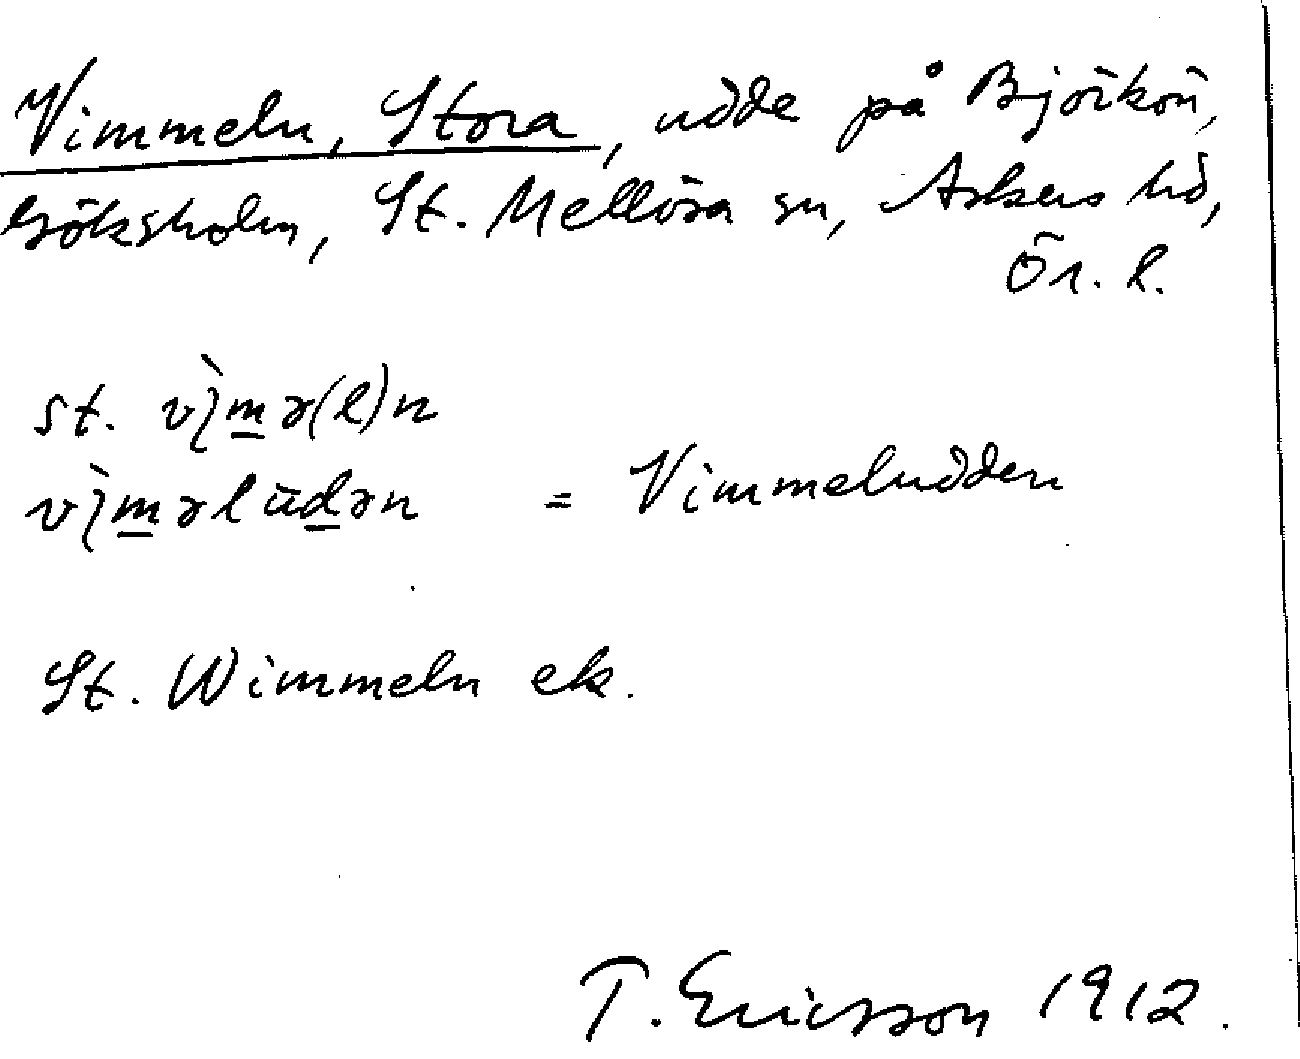 Vimmeln, Stora, udde på Björkön,
Göksholm, St. Mellösa sn, Askers hd,
Ör. l.
st. v̀ɩm̲ə(l)n
v̀ɩm̲əlūd̲ən = Vimmeludden
St. Wimmeln ek.
T. Ericsson 1912.